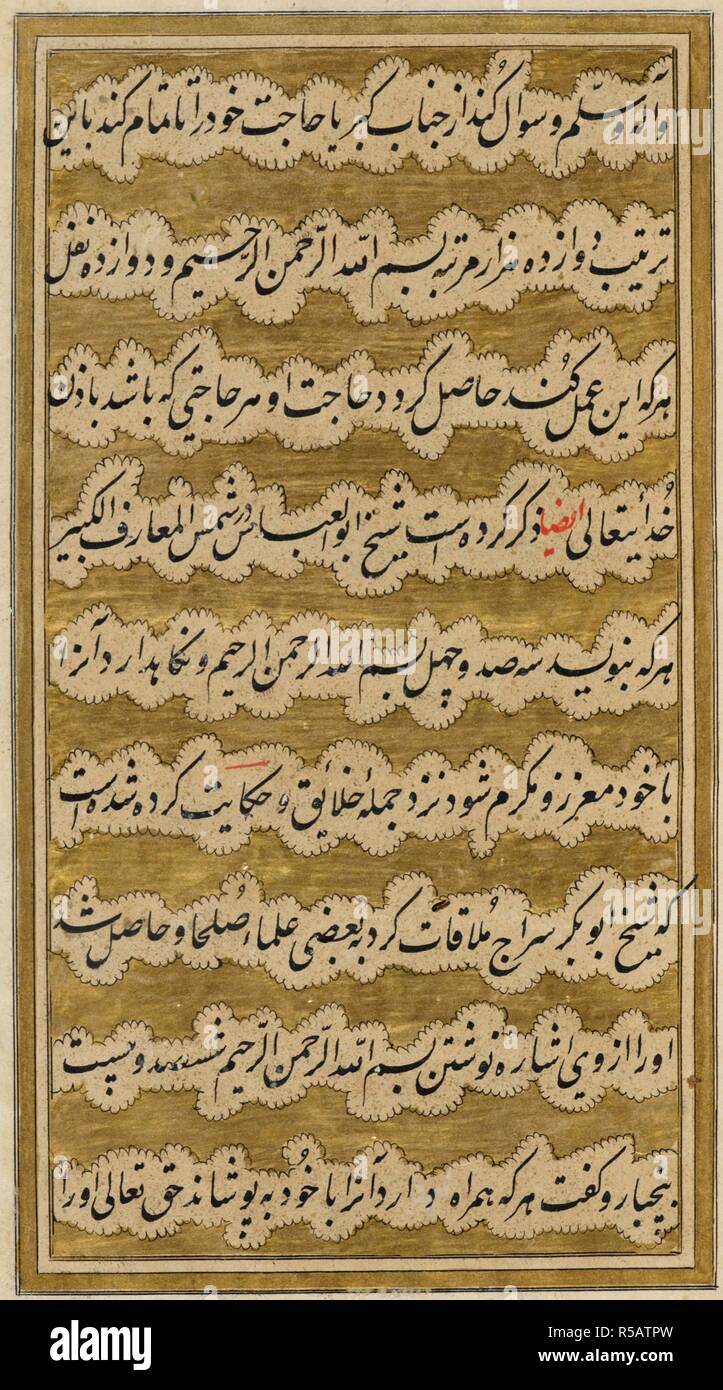 وآله وسلّم و سوال کند از جناب کبریا حاجت خود را تا تمام کند باین
ترتیب دوازده هزار مرتبه بسم الله الرّحمن الرّحیم و دوازده نفل
هرکه این عمل کُند حاصل کردد حاجت او هر حاجتی که باشد باذن
خُدایتعالی ایضا ذکر کرده است شیخ ابو العباس در شمس المعارف الکبیر
هرکه بنویسد سه صد و چهل بسم الله الرحمن الرحیم و نکاهدارد آنرا
با خود معزز و مکرم شود نزد جملهٔ خلائق و حکایت کرده شده است
که شیخ ابو بکر سراج مُلاقات کرد به بعضی علماء صُلحا و حاصل شد
اورا از وی اشاره نوشتن بسم الله الرّحمن الرّحیم ششصد و بیست
پنجبار و کفت هرکه همراه دارد آنرا با خُود به پوشاند حق تعالی اورا
alamy
Image ID: R5ATPW
www.alamy.com